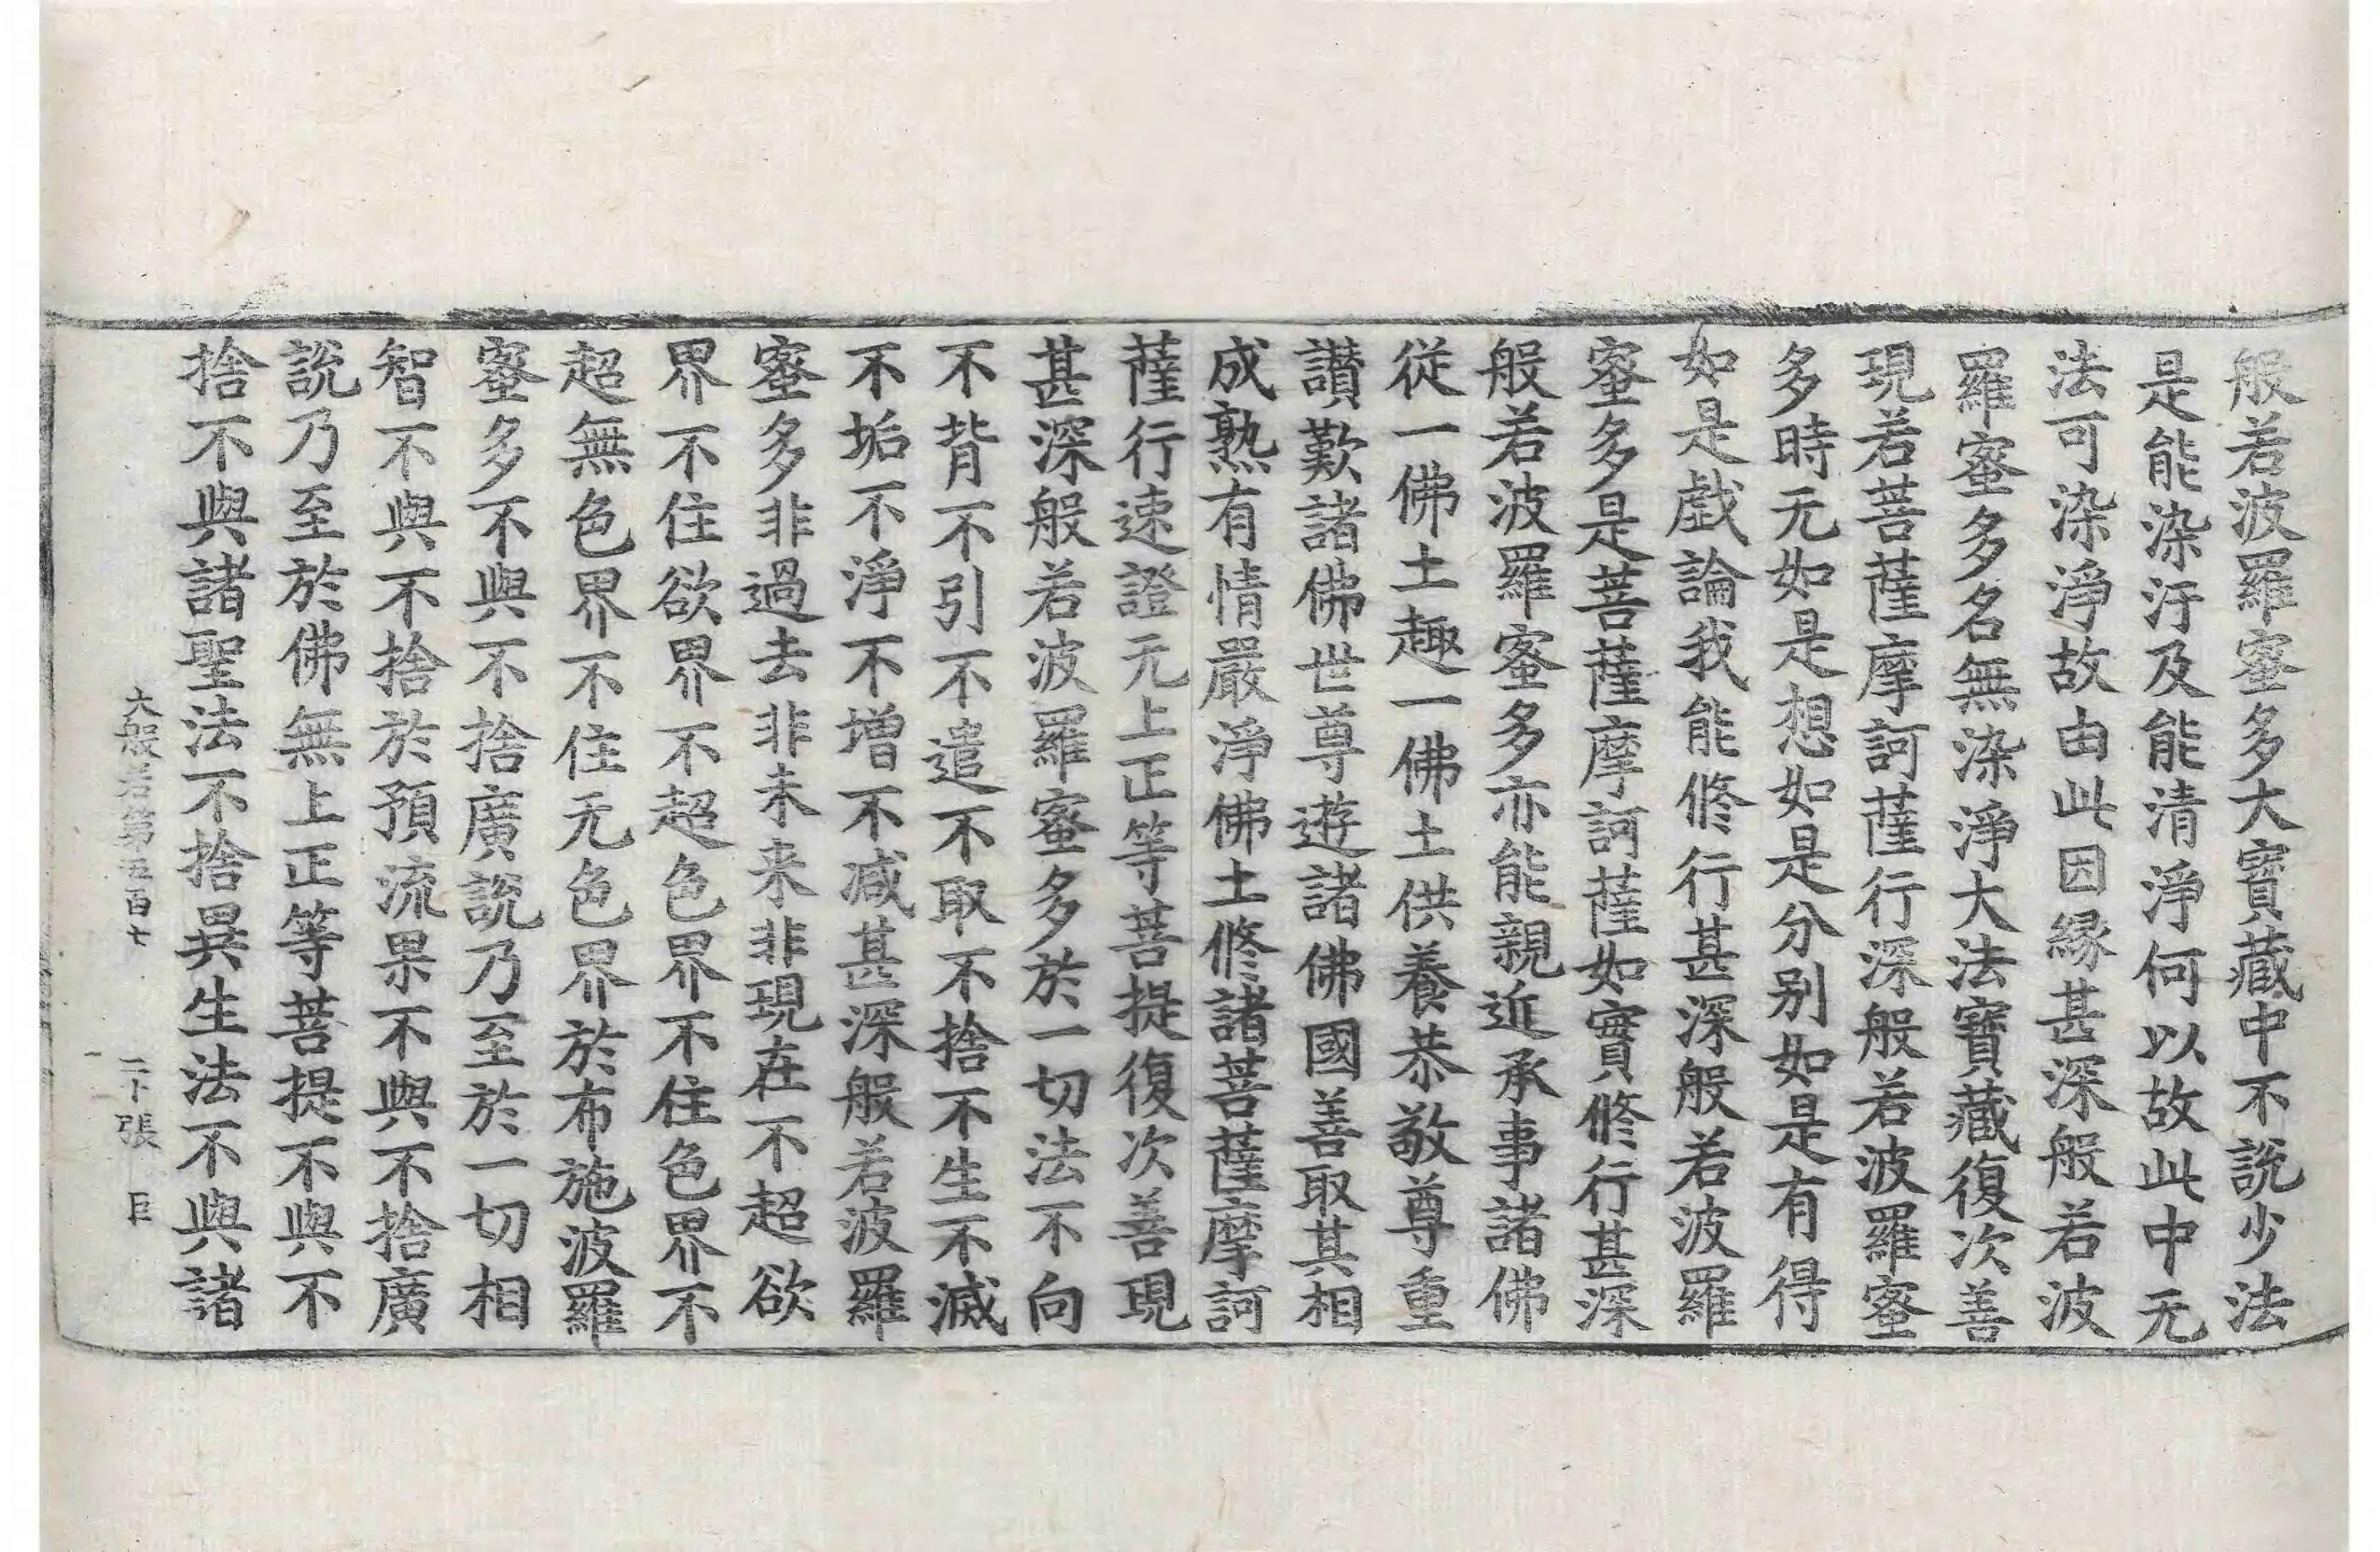 般若波羅蜜多大寶藏中不說少法
是能染汙及能清淨何以故此中无
法可染淨故由此因緣甚深般若波
羅蜜多名無染淨大法寶藏復次善
現若菩薩摩訶薩行深般若波羅蜜
多時无如是想如是分別如是有得
如是戱論我能修行甚深般若波羅
蜜多是菩薩摩訶薩如實修行甚深
般若波羅蜜多亦能親近承事諸佛
從一佛土趣一佛土供養恭敬尊重
讃歎諸佛世尊遊諸佛國善取其相
成熟有情嚴淨佛土修諸菩薩摩訶
薩行速證无上正等菩提復次善現
甚深般若波羅蜜多於一切法不向
不背不引不遣不取不捨不生不滅
不垢不淨不增不减甚深般若波羅
蜜多非過去非未来非現在不超欲
界不住欲界不超色界不住色界不
超無色界不住无色界於布施波羅
蜜多不與不捨廣說乃至於一切相
智不與不捨於預流果不與不捨廣
說乃至於佛無上正等菩提不與不
捨不與諸聖法不捨異生法不與諸
大般若第五百七 二十張 臣